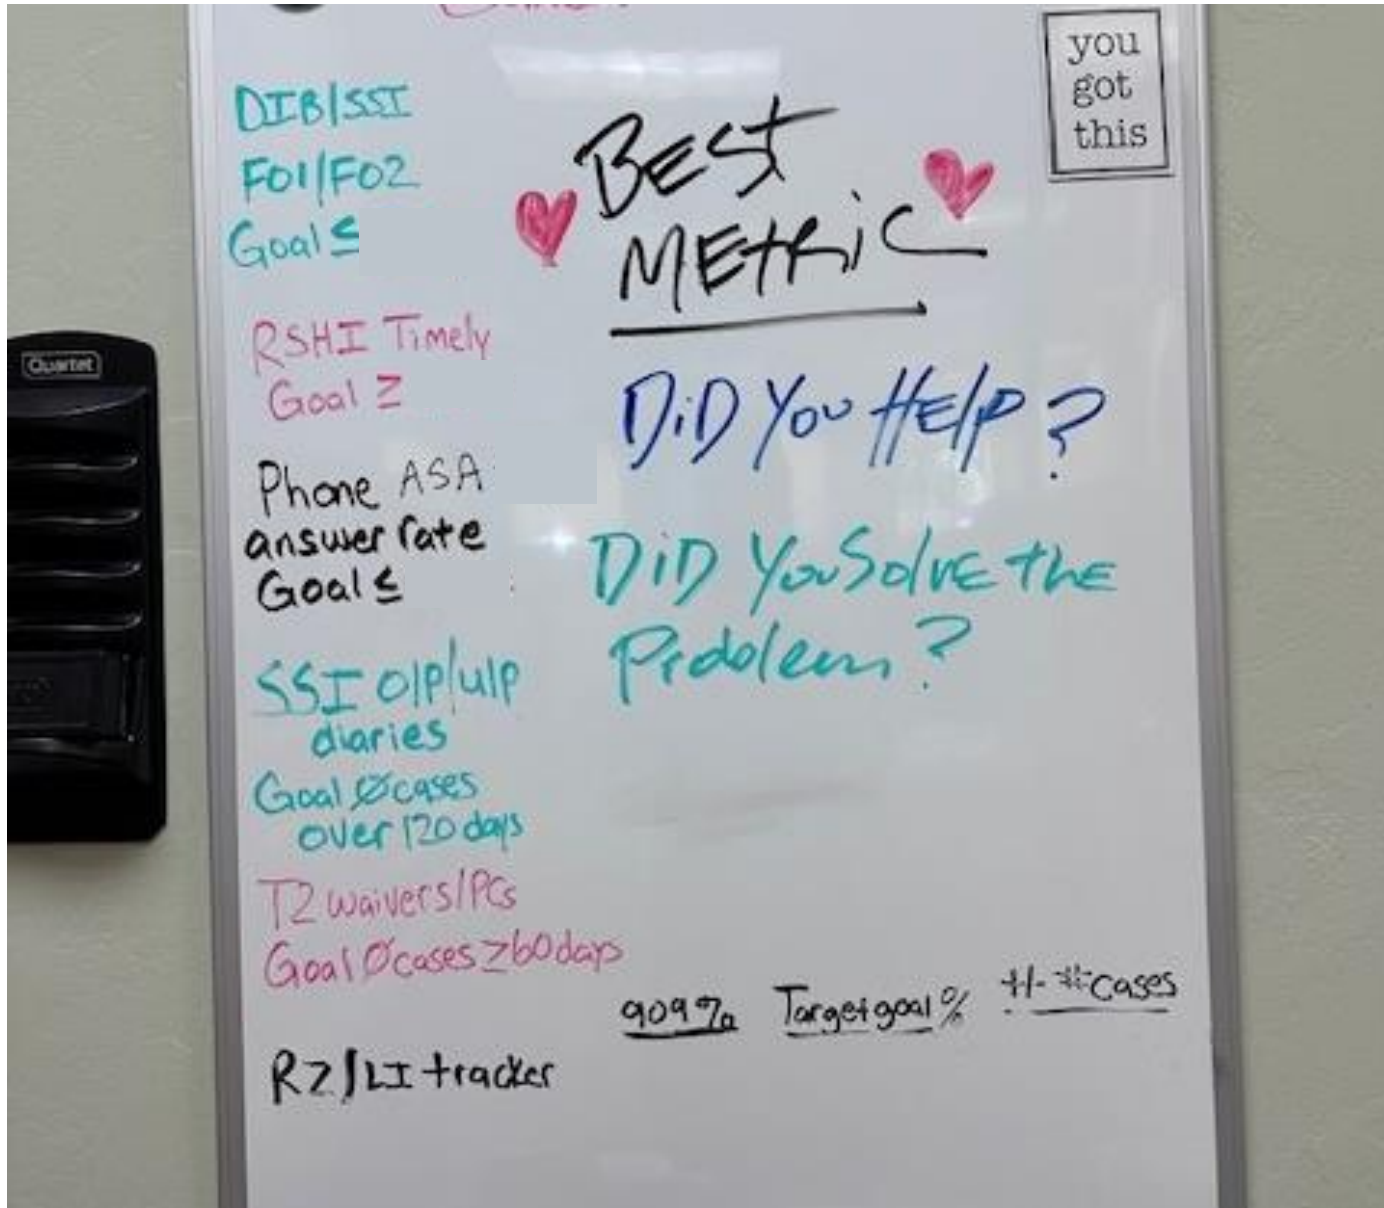 DIB/SSI
FO1/FO2
Goal ≤
RSHI Timely
Goal ≥
Phone ASA
answer rate
Goal ≤
SSI O/P/U/P
diaries
Goal Ø cases
over 120 days
T2 waivers/PCs
Goal Ø cases ≥ 60 days
RZ/LI tracker
BESt
MEtRiC
DiD You HElP?
DiD You SolvE thE
Problem?
909%
Target goal %
+/- # cases
you
got
this
Quartet